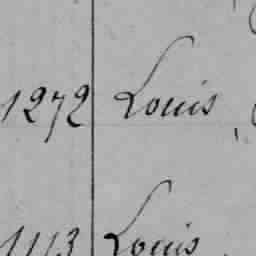 1272 Louis
1113 Louis